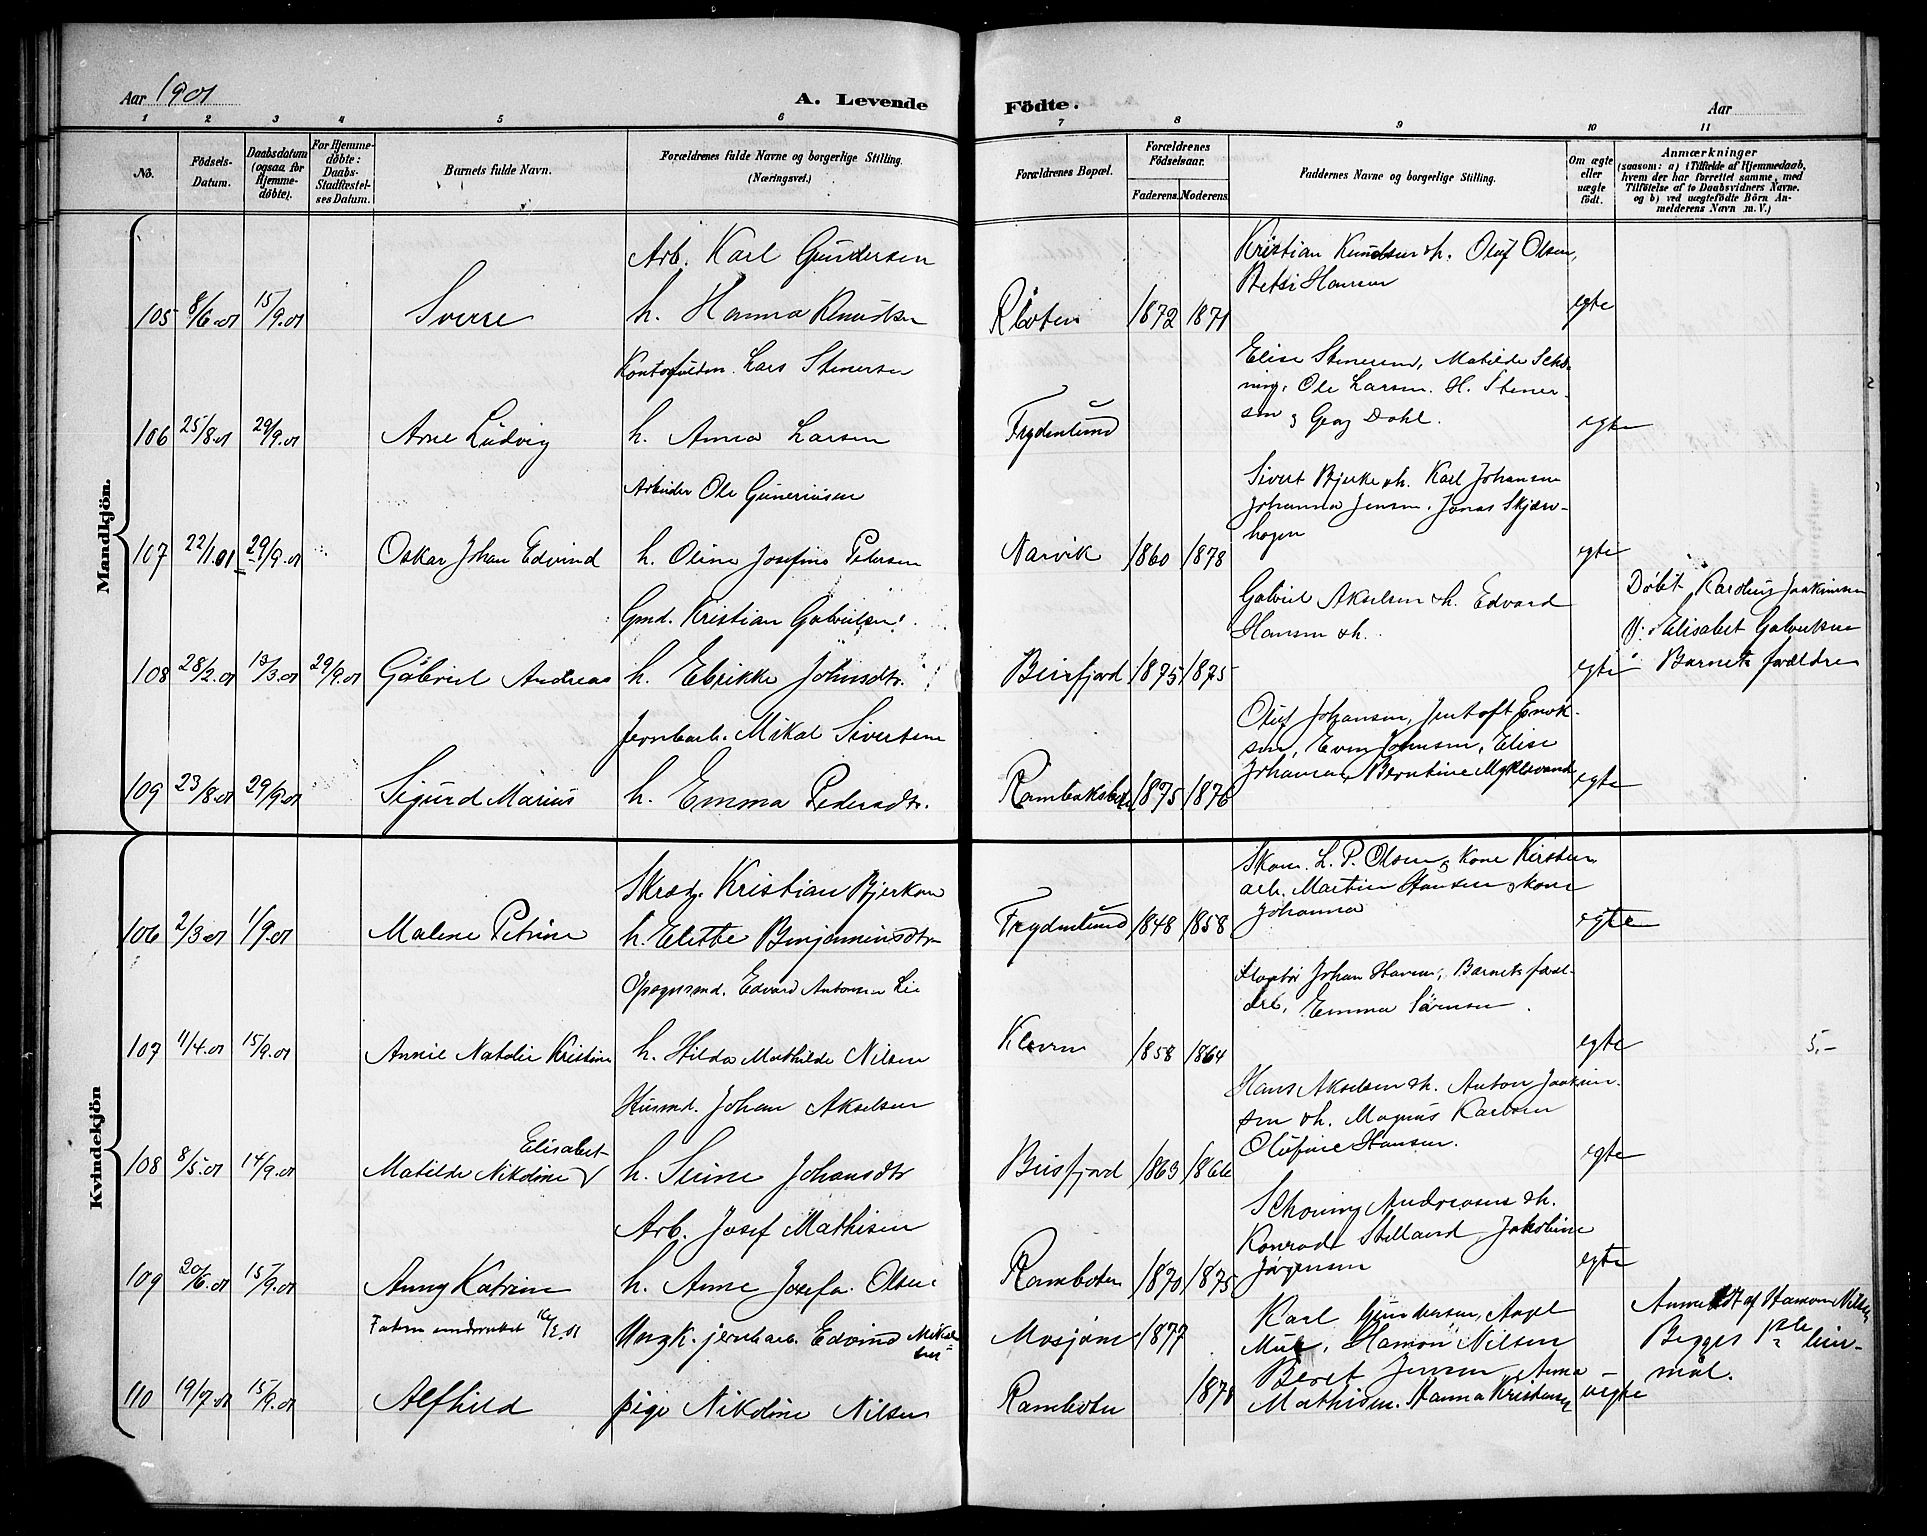 Aar 1901
A. Levende
Födte.
Aar
1 2 3 4 5 6 7 8 9 10 11
No.
Födsels-Datum.
Daabsdatum (ogsaa for Hjemme-döbte).
For Hjemme-döbte: Daabs-Stadfæstel-ses Datum.
Barnets fulde Navn.
Forældrenes fulde Navne og borgerlige Stilling. (Næringsvei.)
Forældrenes Bopæl.
Forældrenes Födselsaar.
Faderens. Moderens.
Faddernes Navne og borgerlige Stilling.
Om ægte eller uægte födt.
Anmærkninger
(saasom: a) i Tilfælde af Hjemmedaab,
hvem der har forrettet samme, med
Tilföielse af to Daabsvidners Navne.
og b) ved uægtefödte Börn An-
melderens Navn m. V.)
Mandkjön.
Arb. Karl Gundersen
Kristian Knudsen & h. Oluf Olsen,
Betsi Hansen
105 8/6.01 15/9.01 Sverre h. Hanna Knudtsen 1872 1871 egte
Lars Stenersen
Elise Stenersen, Matilde Schö-
ning, Ole Larsen. H. Stener-
sen & Georg Dahl.
106 25/8.01 29/9.01 Arne Ludvig h. Anna Larsen Frydenlund egte
Arbeider Ole Guneriusen
Sivert Bjerke & h. Karl Johansen
Johanna Jensen, Jonas Skjæv-
hagen
107 22/1.01 29/9.01 Oskar Johan Edvind h. Oline Josefine Pedersen Narvik 1860 1878 egte
Gmd. Kristian Gabrielsen
Gabriel Akselsen & h. Edvard
Hansen & h.
Döbt Karolius Joakimsen
V. Elisabet Gabrielsen
108 28/2.01 /3.01 29/9.01 Gabriel Andreas h. Johnsdtr. Beisfjord 1875 1875 egte Barnets forældre
Jernbarb. Mikal Sivertsen
Oluf Johansen, Jentoft Enok-
sen, Even Johnsen, Elise
Johansen, Berntine
109 23/8.01 29/9.01 Sigurd Marius h. Emma Pedersdtr. 1875 1876 egte
Kvindekjön
Skræd. Kristian Bjerkan
Skom. L. P. Olsen & kone Kirsten
arb. Martin Hansen & kone
Johanna
106 2/3.01 1/9.01 Malene Petrine h. Benjaminsdtr Frydenlund 1848 1858 egte
Opsynsmd. Edvard Antonsen Lie
Johan Hansen, Barnets foræl-
dre, Emma Sörensen.
107 11/4.01 15/9.01 Annie Natalie Kristine h. Hilda Mathilde Nilsen 1858 1864 egte 5,-
Husmd. Johan Akselsen
Hans Akselsen & h. Anton Joakim-
sen & h. Magnus Karlsen
Olufine Hansen.
Elisabet
108 8/5.01 14/9.01 Matilde Nikoline h. Johansdtr Beisfjord 1863 1866 egte
Arb. Josef Mathisen
Schöning Andreasen & h.
Konrad Jakobine
Jörgensen
109 20/6.01 15/9.01 Anny Katrine h. Anne Josefa Olsen 1870 1875 egte
Ungk. jernbarb. Edvind Mikal-
sen
Mosjöen 1877
Karl Gundersen,
Hamon Nilsen
Beret Jensen, Anna
Mathisen. Hanna Kristensen
Anmeldt af Hamon Nilsen
Begges 1ste leier-
mål.
110 19/7.01 15/9.01 Alfhild pige Nikoline Nilsen 1878 uegte